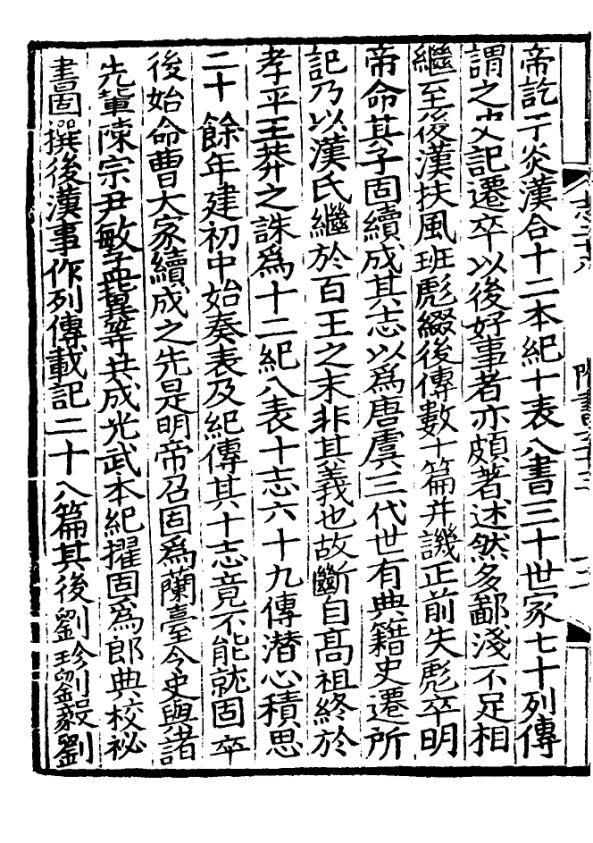 帝訖于炎漢合十二本紀十表八書三十世家七十列傳
謂之史記遷卒以後好事者亦頗著述然多鄙淺不足相
繼至後漢扶風班彪綴後傳數十篇并譏正前失彪卒明
帝命其子固續成其志以爲唐虞三代世有典籍史遷所
記乃以漢氏繼於百王之末非其義也故斷自高祖終於
孝平王莽之誅爲十二紀八表十志六十九傳潜心積思
二十餘年建初中始奏表及紀傳其十志竟不能就固卒
後始命曹大家續成之先是明帝召固爲蘭臺令史與諸
先輩陳宗尹敏孟冀等共成光武本紀擢固爲郎典校祕
書固撰後漢事作列傳載記二十八篇其後劉珍劉毅劉